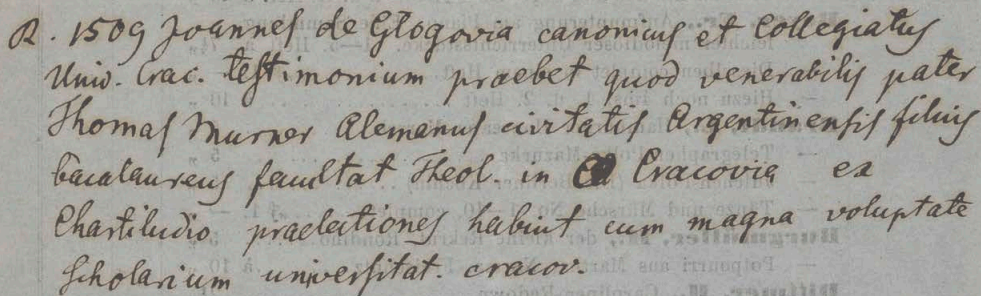 R. 1509 Joannes de Glogovia canonicus et Collegiatus
Univ. Crac. testimonium praebet quod venerabilis pater
Thomas Murner Alemanus civitatis Argentinensis filius
bacalaureus facultat Theol. in Cracovia ex
Chartiludio praelectiones habuit cum magna voluptate
Scholarium universitat. cracov.